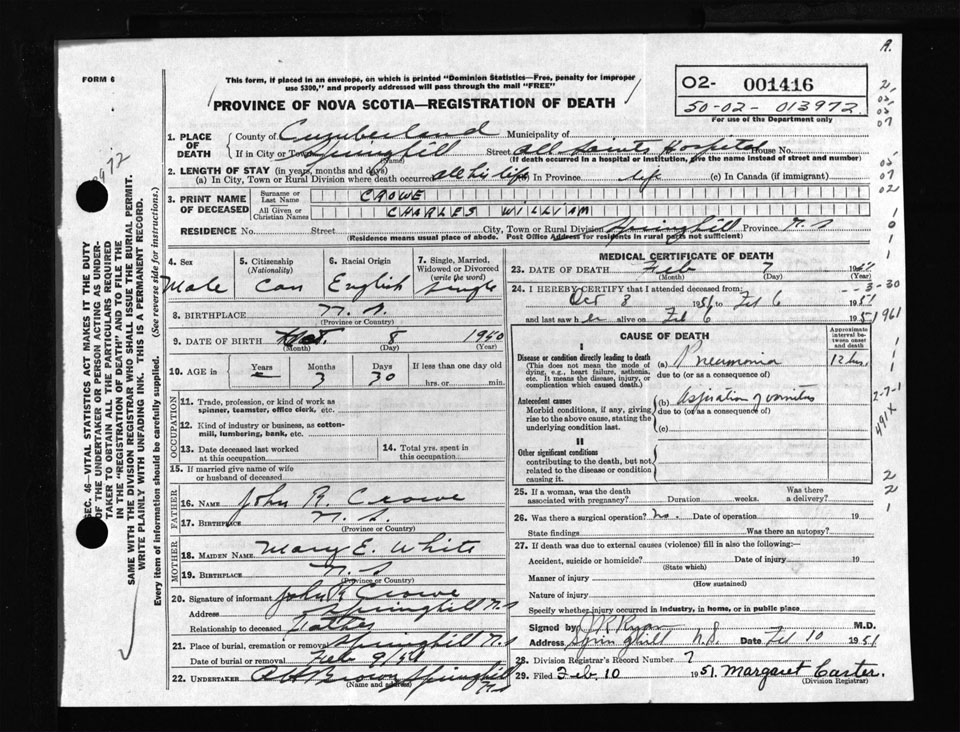 FORM 6
This form, if placed in an envelope, on which is printed "Dominion Statistics—Free, penalty for improper
use $300," and properly addressed will pass through the mail "FREE"
PROVINCE OF NOVA SCOTIA—REGISTRATION OF DEATH
02- 001416
50-02- 013972
For use of the Department only
1. PLACE OF DEATH
County of Cumberland Municipality of
If in City or Town Springhill (Name) Street All Saints Hospital House No.
(If death occurred in a hospital or institution, give the name instead of street and number)
2. LENGTH OF STAY (in years, months and days)
(a) In City, Town or Rural Division where death occurred all his life (b) In Province life (c) In Canada (if immigrant)
3. PRINT NAME OF DECEASED
Surname or Last Name CROWE
All Given or Christian Names CHARLES WILLIAM
RESIDENCE No. Street City, Town or Rural Division Springhill Province N.S
(Residence means usual place of abode. Post Office Address for residents in rural parts not sufficient)
4. Sex Male
5. Citizenship (Nationality) Can
6. Racial Origin English
7. Single, Married, Widowed or Divorced (write the word) Single
8. BIRTHPLACE N.S. (Province or Country)
9. DATE OF BIRTH Oct. (Month) 8 (Day) (Year)
10. AGE in Years Months 3 Days 30 If less than one day hrs. or min.
OCCUPATION
11. Trade, profession, or kind of work as spinner, teamster, office clerk, etc.
12. Kind of industry or business, as cotton-mill, lumbering, bank, etc.
13. Date deceased last worked at this occupation
14. Total yrs. spent in this occupation
15. If married give name of wife or husband of deceased
FATHER
16. NAME John R. Crowe
17. BIRTHPLACE N.S. (Province or Country)
MOTHER
18. MAIDEN NAME Mary E. White
19. BIRTHPLACE N.S (Province or Country)
20. Signature of informant John R Crowe
Address Springhill N.S
Relationship to deceased Father
21. Place of burial, cremation or removal Springhill N.S
Date of burial or removal Feb 9/51
22. UNDERTAKER Brown Springhill N.S
(Name and address)
MEDICAL CERTIFICATE OF DEATH
23. DATE OF DEATH Feb (Month) 7 (Day) 19
24. I HEREBY CERTIFY that I attended deceased from:
Oct 8 to Feb 6 1951
and last saw h alive on Feb 6 1951
CAUSE OF DEATH
Approximate interval between onset and death
I
Disease or condition directly leading to death
(This does not mean the mode of dying, e.g., heart failure, asthenia, etc. It means the disease, injury, or complication which caused death.)
(a) Pneumonia 12 hrs.
due to (or as a consequence of)
Antecedent causes
Morbid conditions, if any, giving rise to the above cause, stating the underlying condition last.
(b) Aspiration of vomitus
due to (or as a consequence of)
(c)
II
Other significant conditions
contributing to the death, but not related to the disease or condition causing it.
25. If a woman, was the death associated with pregnancy? Duration weeks. Was there a delivery?
26. Was there a surgical operation? No. Date of operation 19
State findings Was there an autopsy?
27. If death was due to external causes (violence) fill in also the following:
Accident, suicide or homicide? (State which) Date of injury 19
Manner of injury (How sustained)
Nature of injury
Specify whether injury occurred in industry, in home, or in public place
Signed by Ryan M.D.
Address Springhill N.S. Date Feb 10 1951
28. Division Registrar's Record Number 7
29. Filed Feb. 10 1951. Margaret Carter.
(Division Registrar)
SEC. 46—VITAL STATISTICS ACT MAKES IT THE DUTY
OF THE UNDERTAKER OR PERSON ACTING AS UNDER-
TAKER TO OBTAIN ALL THE PARTICULARS REQUIRED
IN THE "REGISTRATION OF DEATH" AND TO FILE THE
SAME WITH THE DIVISION REGISTRAR WHO SHALL ISSUE THE BURIAL PERMIT.
WRITE PLAINLY WITH UNFADING INK. THIS IS A PERMANENT RECORD.
Every item of information should be carefully supplied. (See reverse side for instructions.)
3-30
961
2-7-1
491X